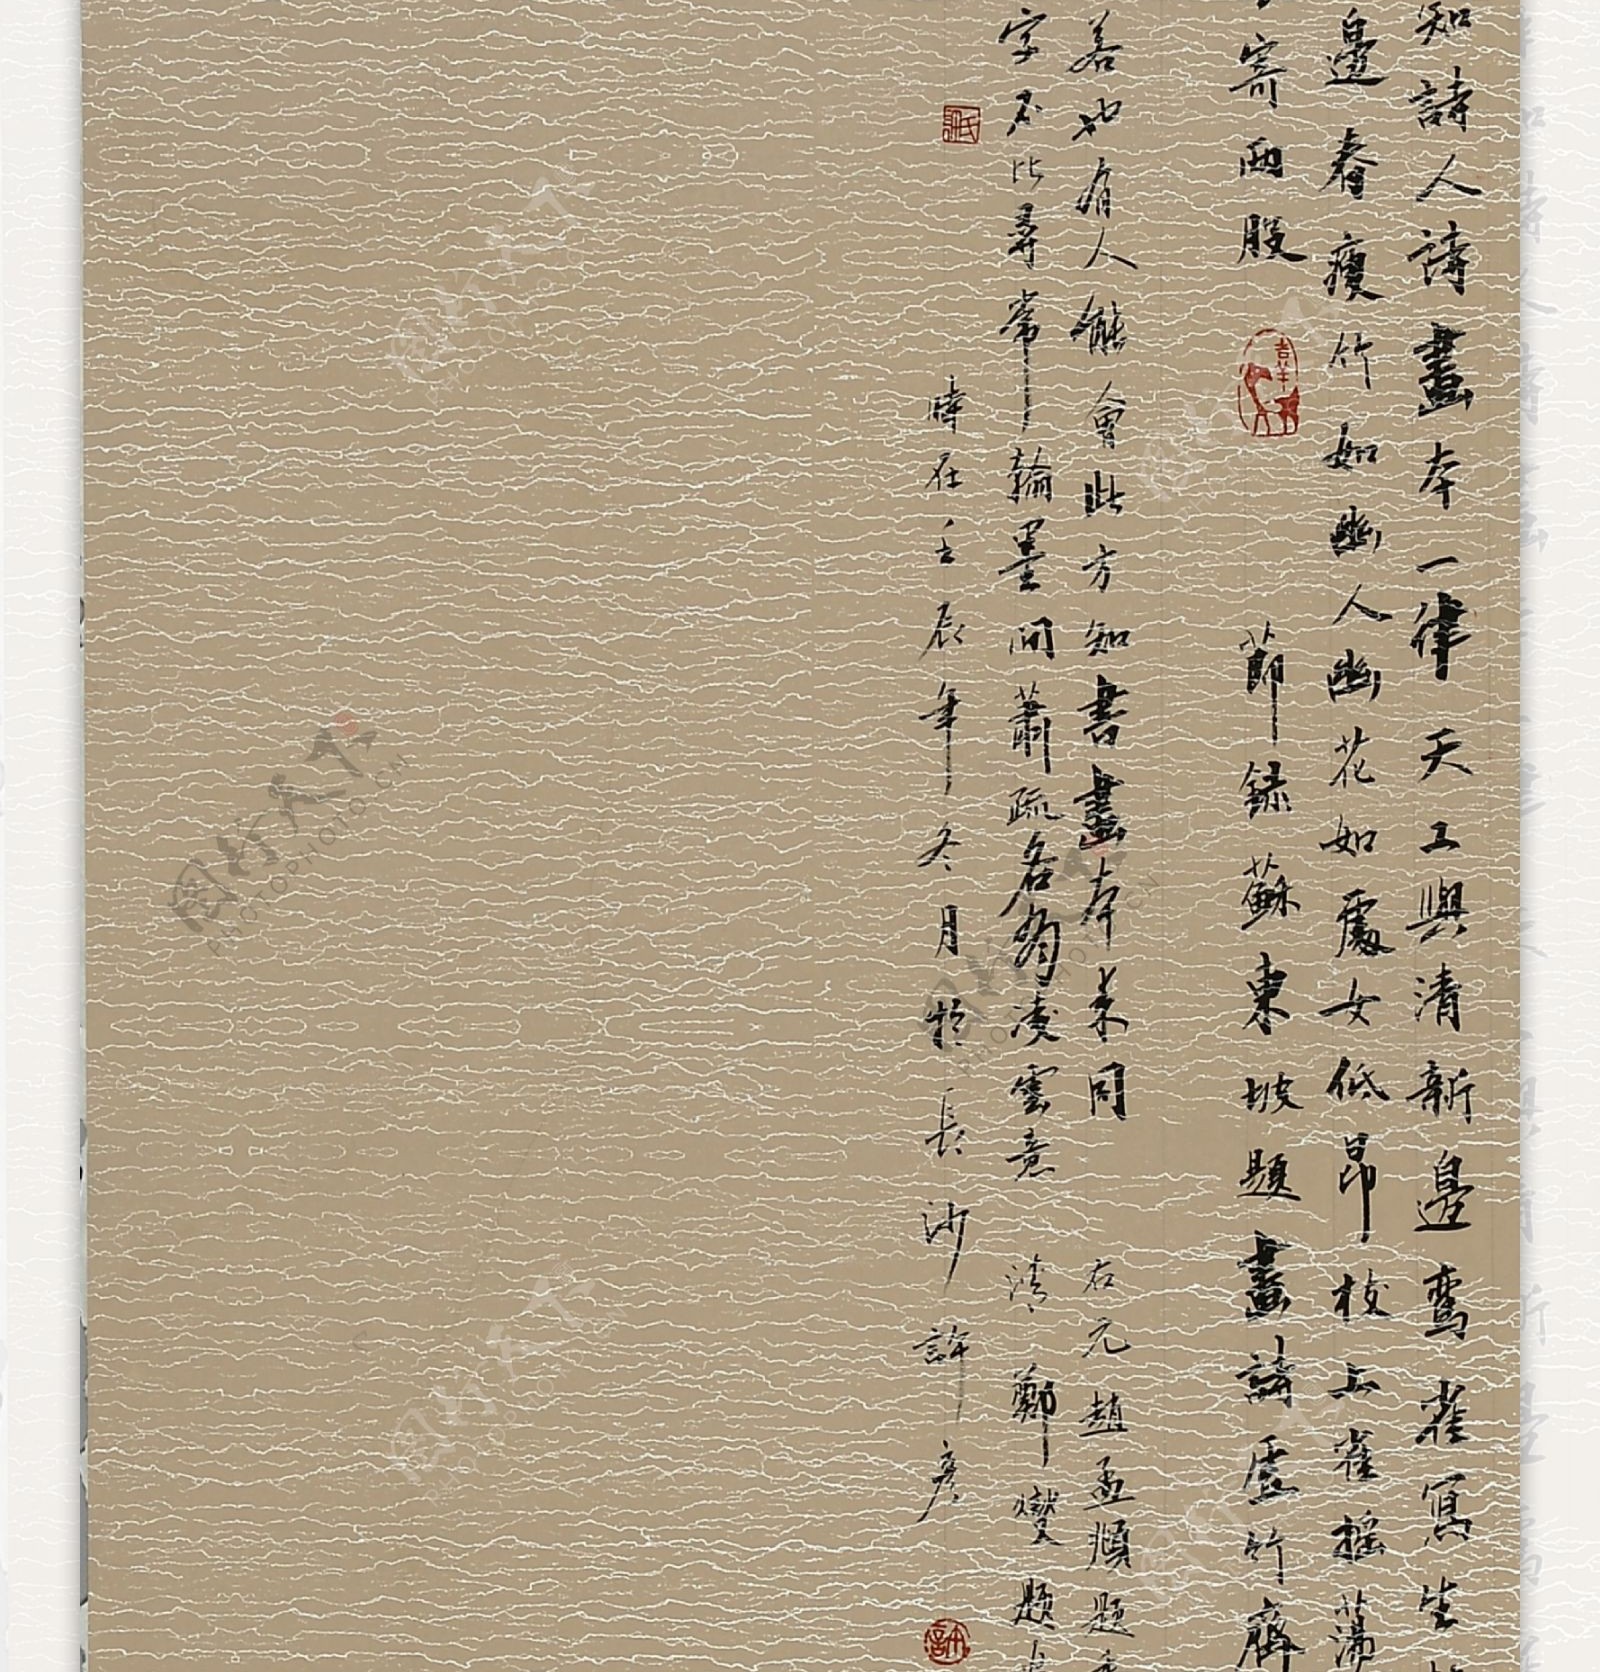 知詩人詩畫本一律天工與清新邊鸞雀寫生
邊春瘦竹如幽人幽花如處女低昂枝上雀搖蕩
寄兩股
節錄蘇東坡題畫詩 虛竹齋
若也有人能會此方知書畫本来同 右元趙孟頫題
字不比尋常翰墨間蕭疏各有凌雲意 清鄭燮題
時在壬辰年冬月於長沙許彦
图行天下
PHOTOPHOTO.CN